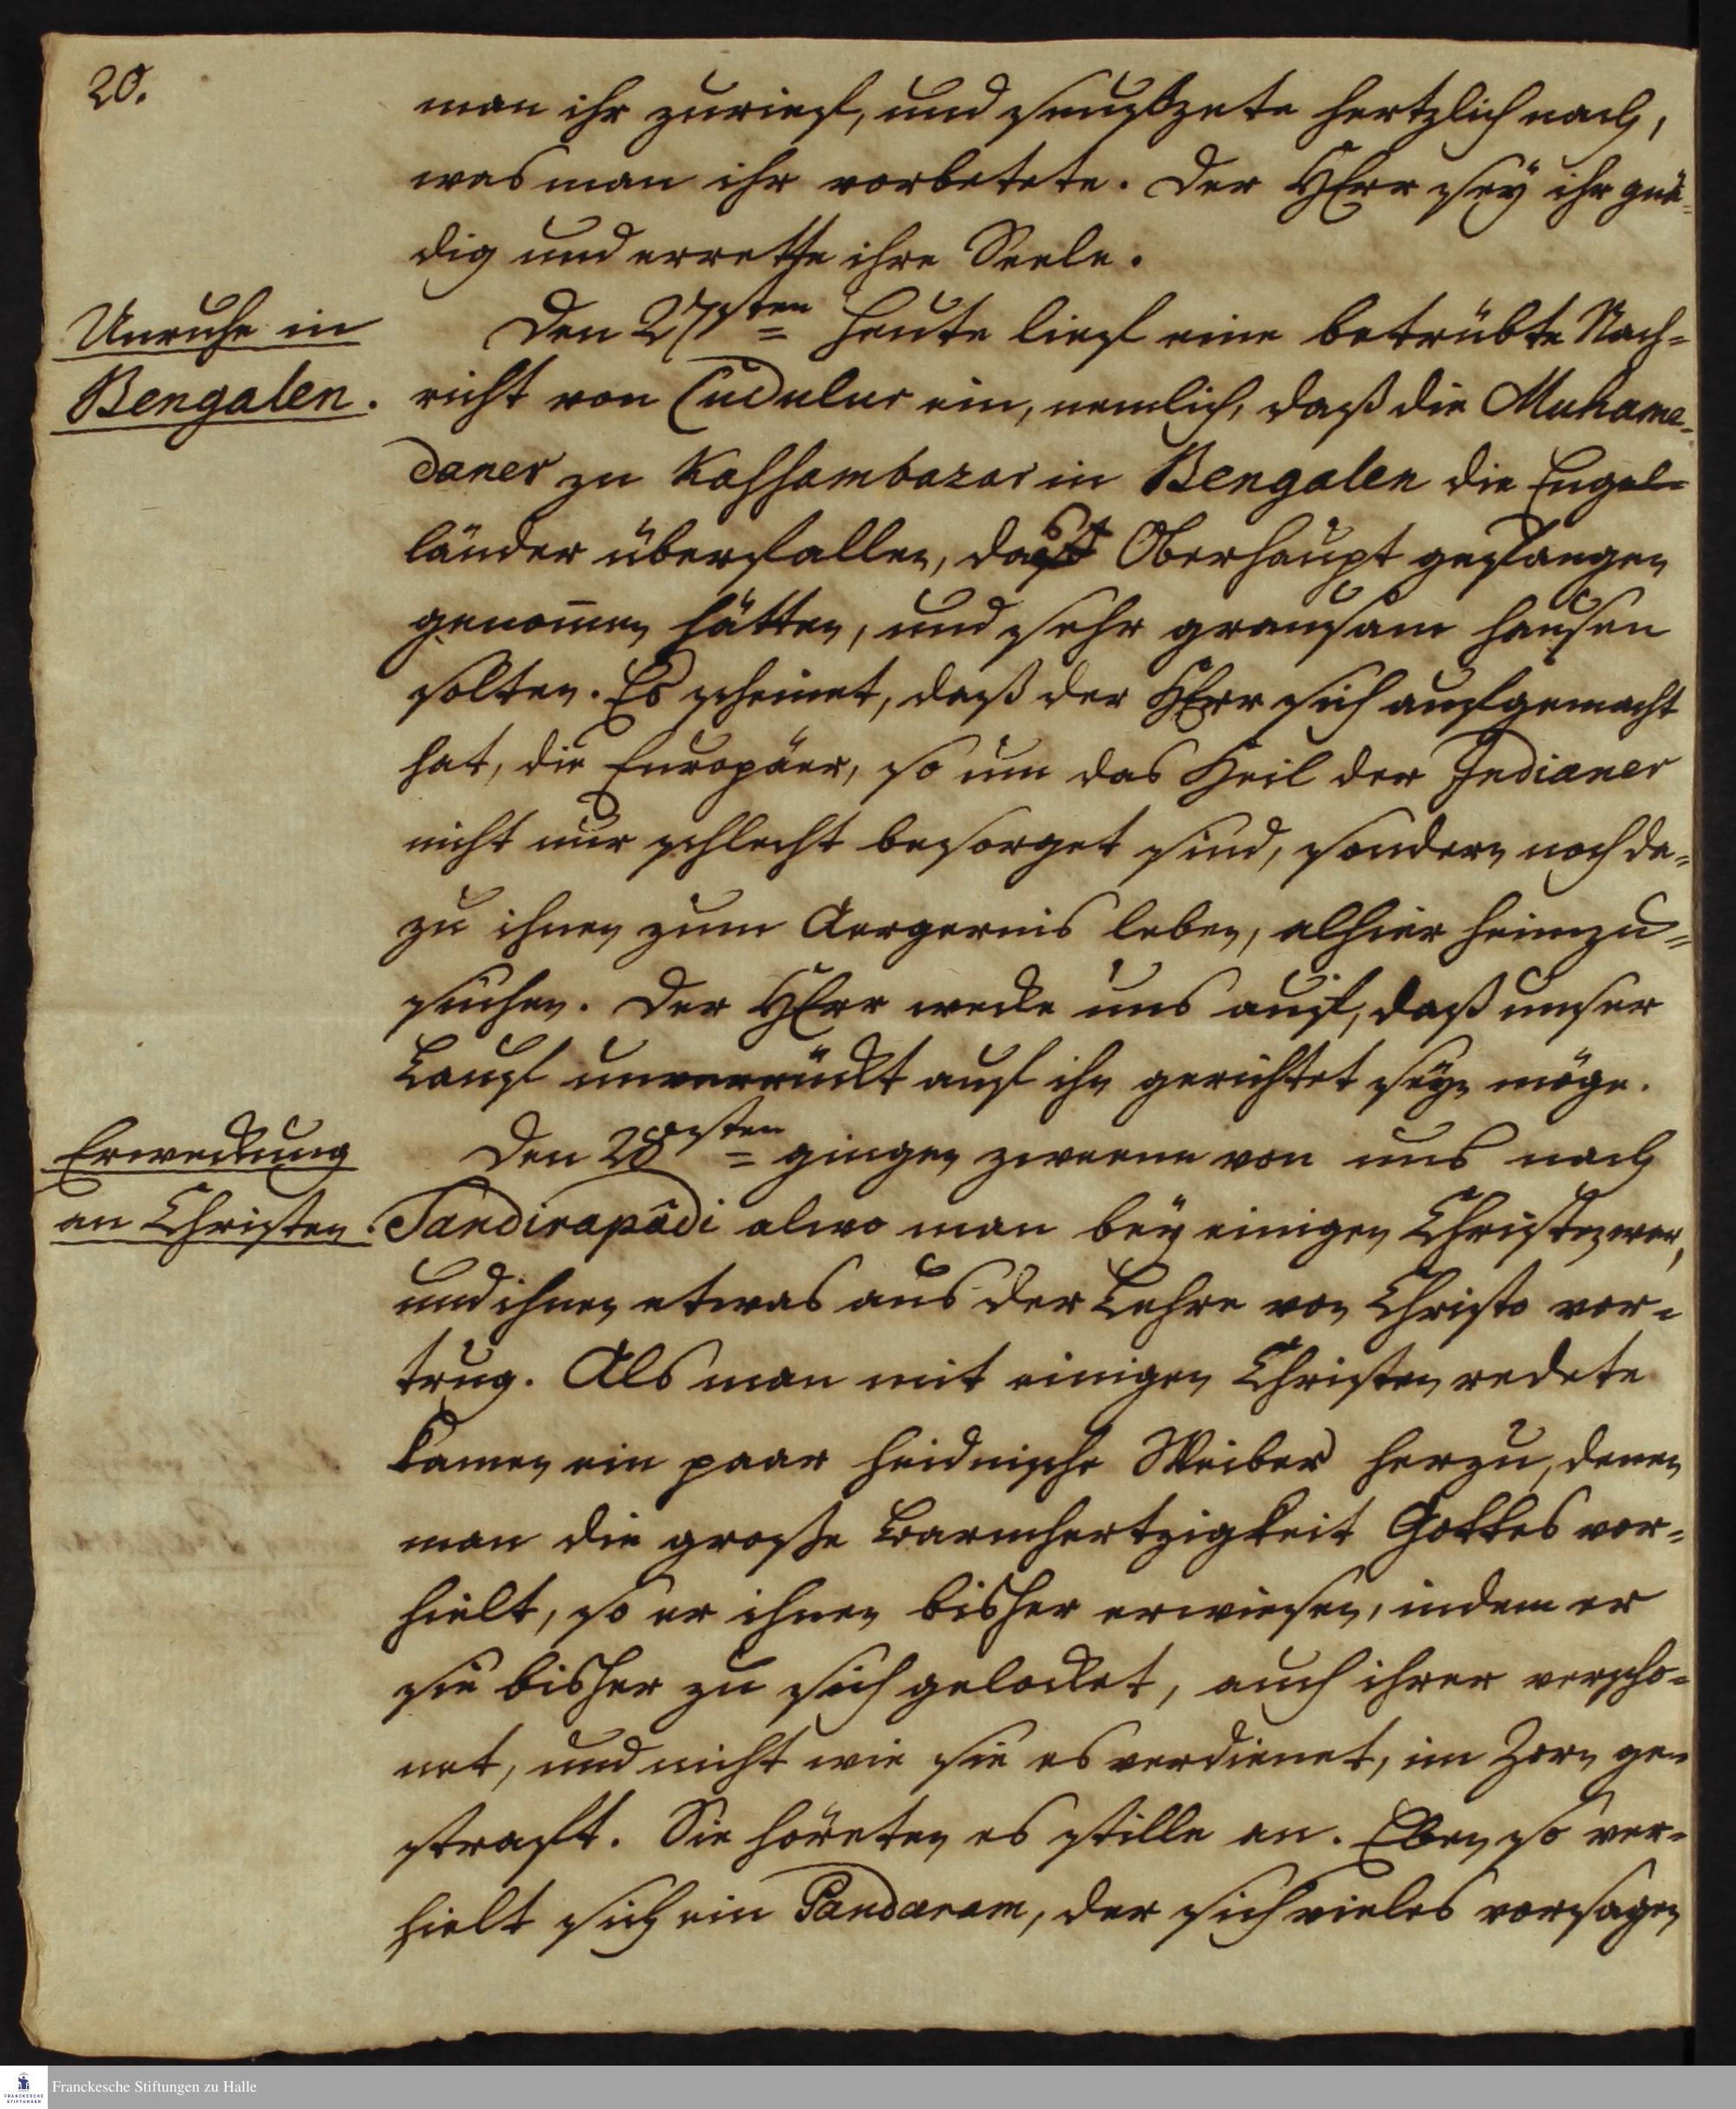 20.
man ihr zurief, und seufzete hertzlich nach,
was man ihr vorbetete. Der HErr sey ihr gnä-
dig und errette ihre Seele.
Unruhe in
Bengalen.
Den 27sten heute lief eine betrübte Nach-
richt von Cudulur ein, nemlich, daß die Muhame-
daner zu Kassambazar in Bengalen die Engel-
länder überfallen, das Oberhaupt gefangen
genom̄en hätten, und sehr grausam hausen
solten. Es scheinet, daß der HErr sich aufgemacht
hat, die Europäer, so um das Heil der Indianer
nicht nur schlecht besorget sind, sondern noch da-
zu ihnen zum Aergernis leben, alhier heimzu-
suchen. Der HErr wecke uns auf, daß unser
Lauf unverrückt auf ihn gerichtet seyn möge.
Erweckung
an Christen.
Den 28sten gingen zweene von uns nach
Sandirapādi alwo man bey einigen Christen war,
und ihnen etwas aus der Lehre von Christo vor-
trug. Als man mit einigen Christen redete
kamen ein paar heidnische Weiber herzu, denen
man die große Barmhertzigkeit Gottes vor-
hielt, so er ihnen bisher erwiesen, indem er
sie bisher zu sich gelocket, auch ihrer verscho-
net, und nicht wie sie es verdienet, im Zorn ge-
straft. Sie höreten es stille an. Eben so ver-
hielt sich ein Pandaram, der sich vieles vorsagen
Franckesche Stiftungen zu Halle